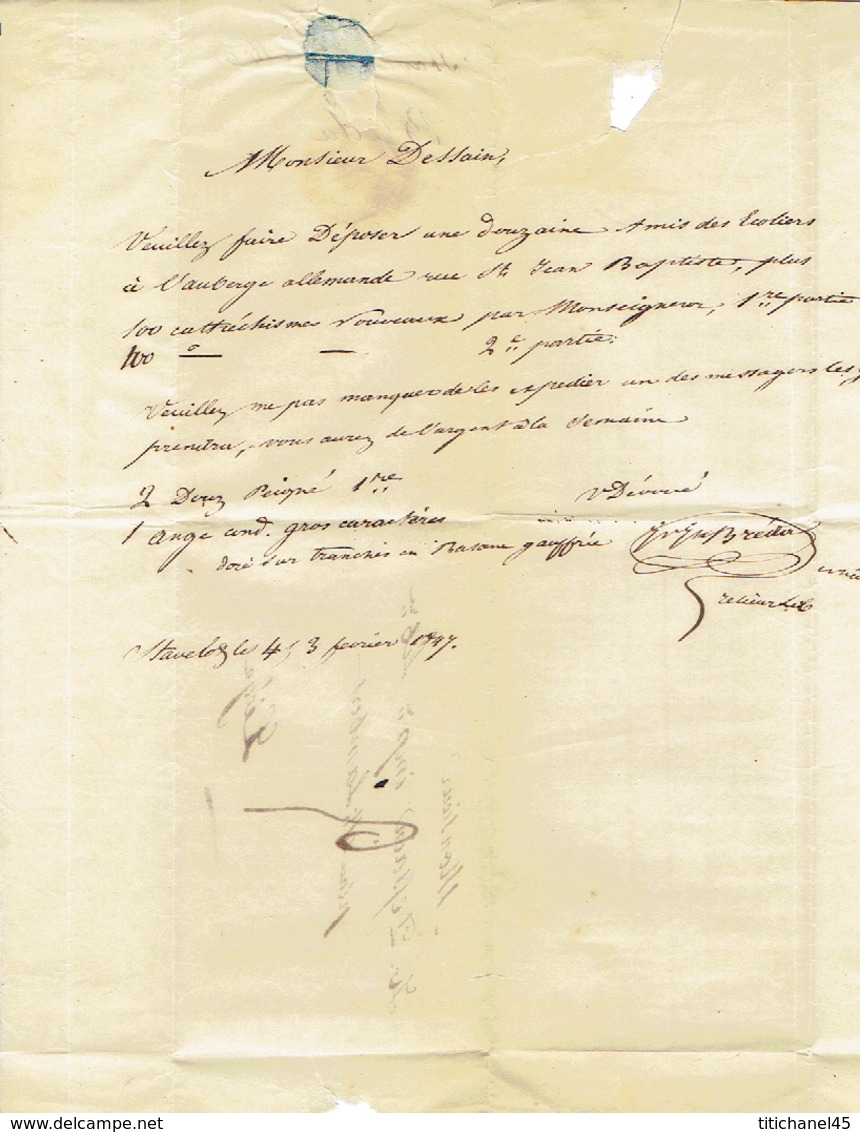 Monsieur Dessain,
Veuillez faire Déposer une Douzaine Amis des Ecoliers
à l'auberge allemande rue St. Jean Baptiste, plus
100 cathéchisme nouveaux par Monseigneur, 1re partie
100 — — 2e partie.
Veuillez ne pas manquer de les expedier un des messagers les
prendra, vous aurez de l'argent à la Semaine
2 Douz Peigné 1re
V Dévoué
1 Ange cond. gros caractères
doré sur tranches en Basane gauffrée
relieur Lib
Stavelot les 4, 3 fevrier 1847.
titichanel45